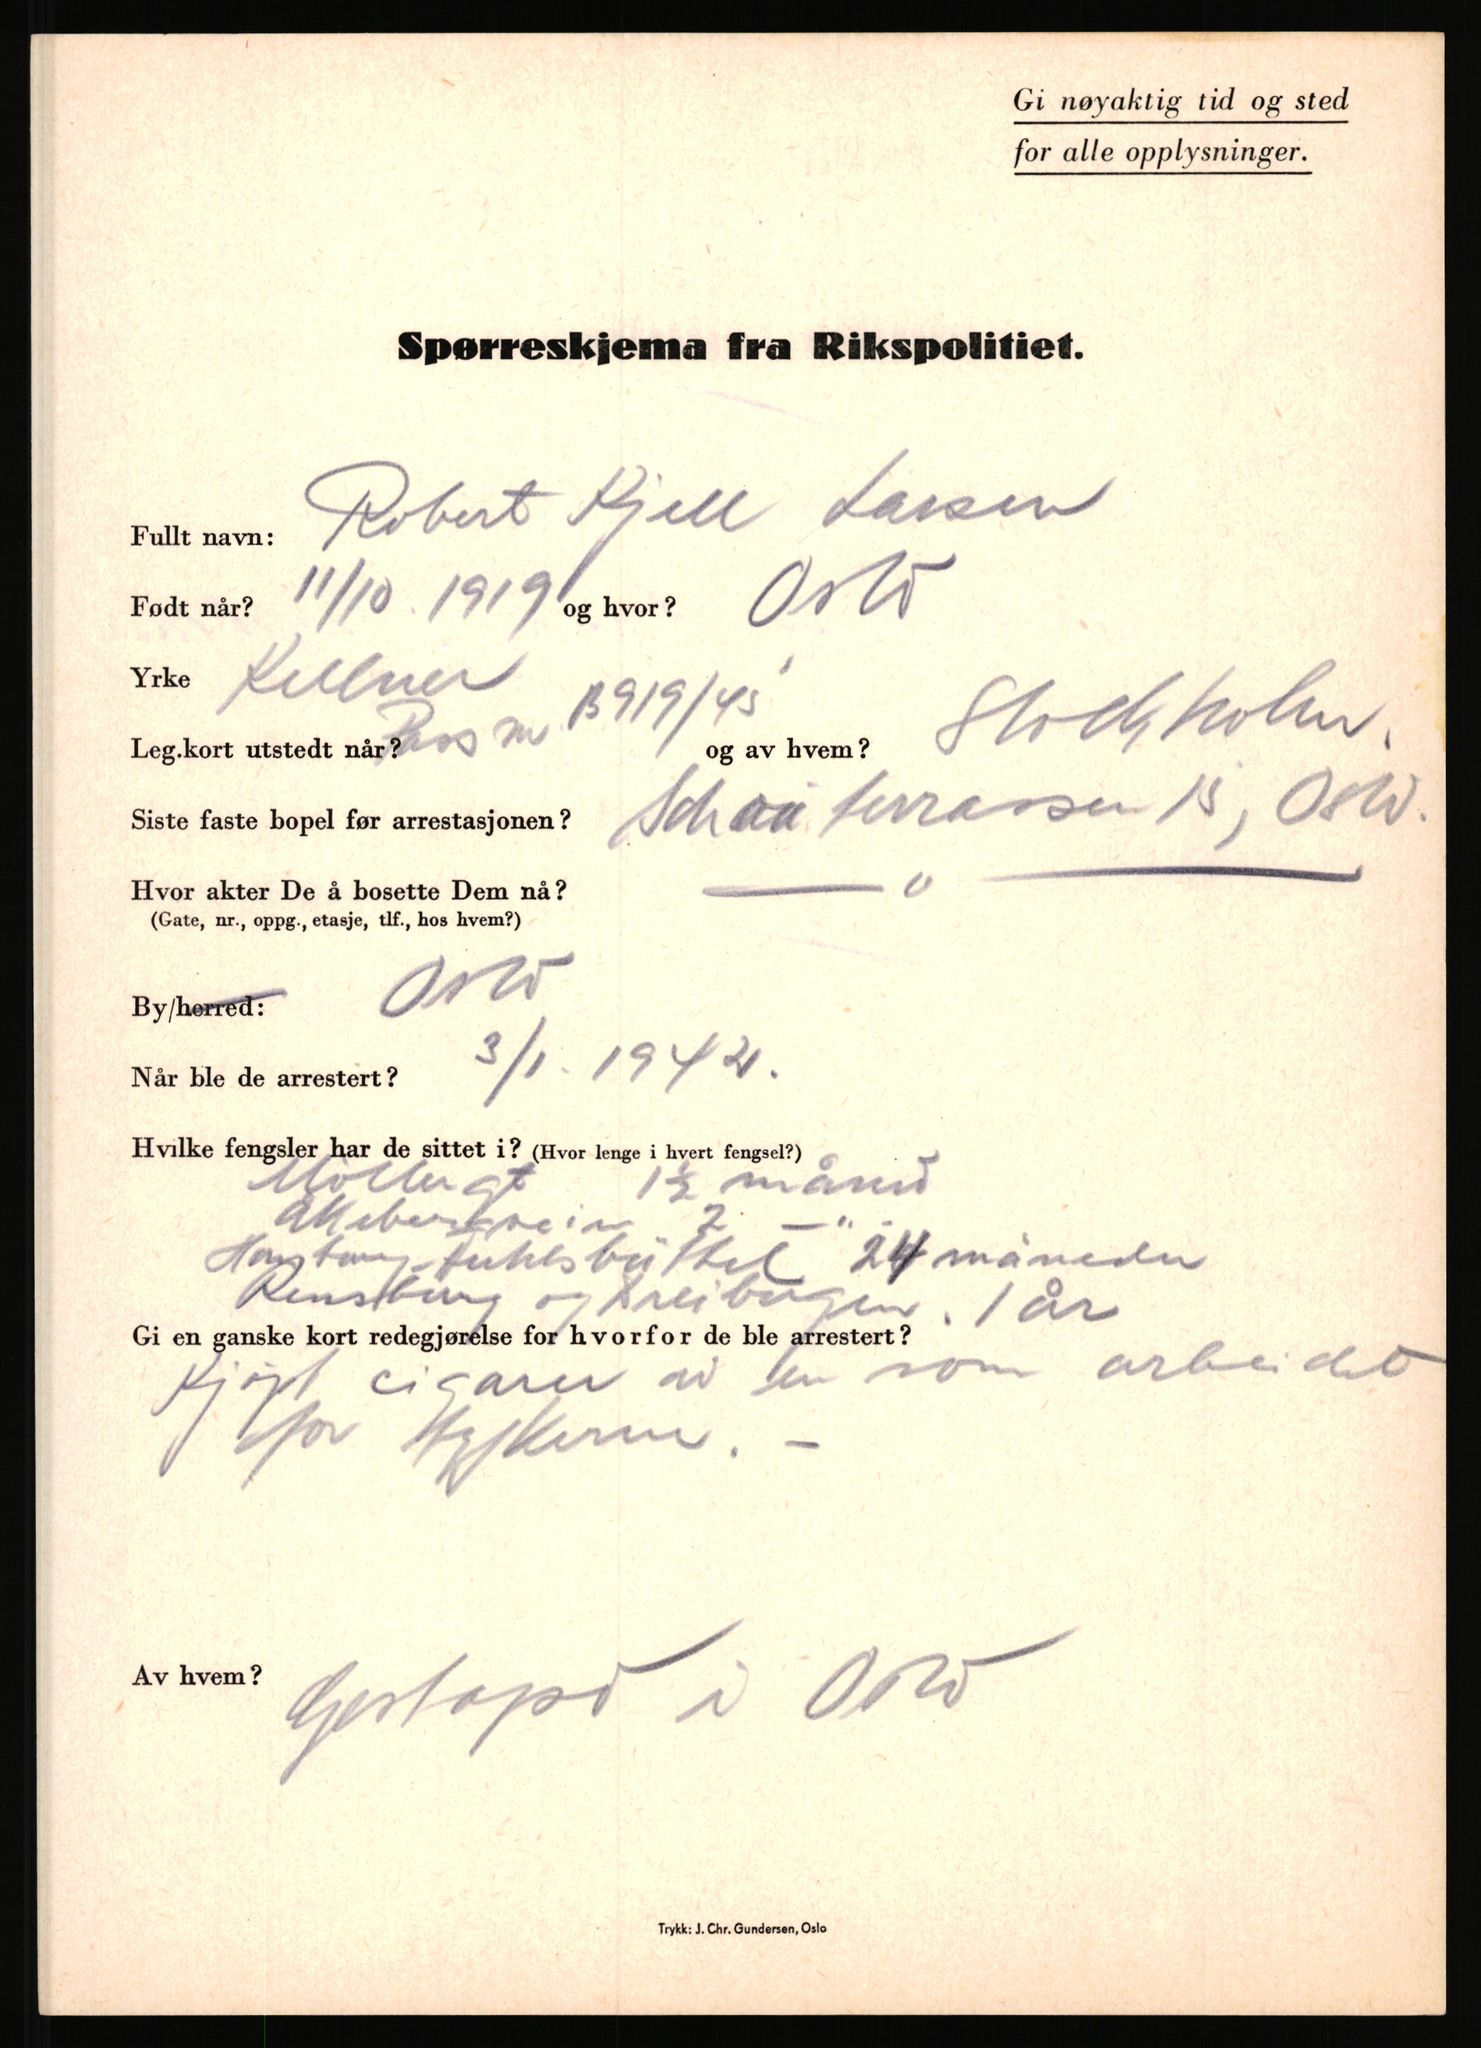 Gi nøyaktig tid og sted
for alle opplysninger.
Spørreskjema fra Rikspolitiet.
Fullt navn: Robert Kjell Larsen
Født når? 11/10. 1919 og hvor? Oslo
Yrke Kellner
Leg.kort utstedt når? Pass nr B919/45 og av hvem? Stockholm.
Siste faste bopel før arrestasjonen? terrassen 15, Oslo.
Hvor akter De å bosette Dem nå? — " —
(Gate, nr., oppg., etasje, tlf., hos hvem?)
By/herred: Oslo
Når ble de arrestert? 3/1. 1942.
Hvilke fengsler har de sittet i? (Hvor lenge i hvert fengsel?)
Møllergt 1½ måned
Åkebergveien 2 — " —
Hamburg-Fuhlsbüttel 24 måneder
Rensburg og Dreibergen. 1 år
Gi en ganske kort redegjørelse for hvorfor de ble arrestert?
Kjøpt cigarer av en som arbeidet
for tyskerne. —
Av hvem? Gestapo i Oslo
Trykk: J. Chr. Gundersen, Oslo